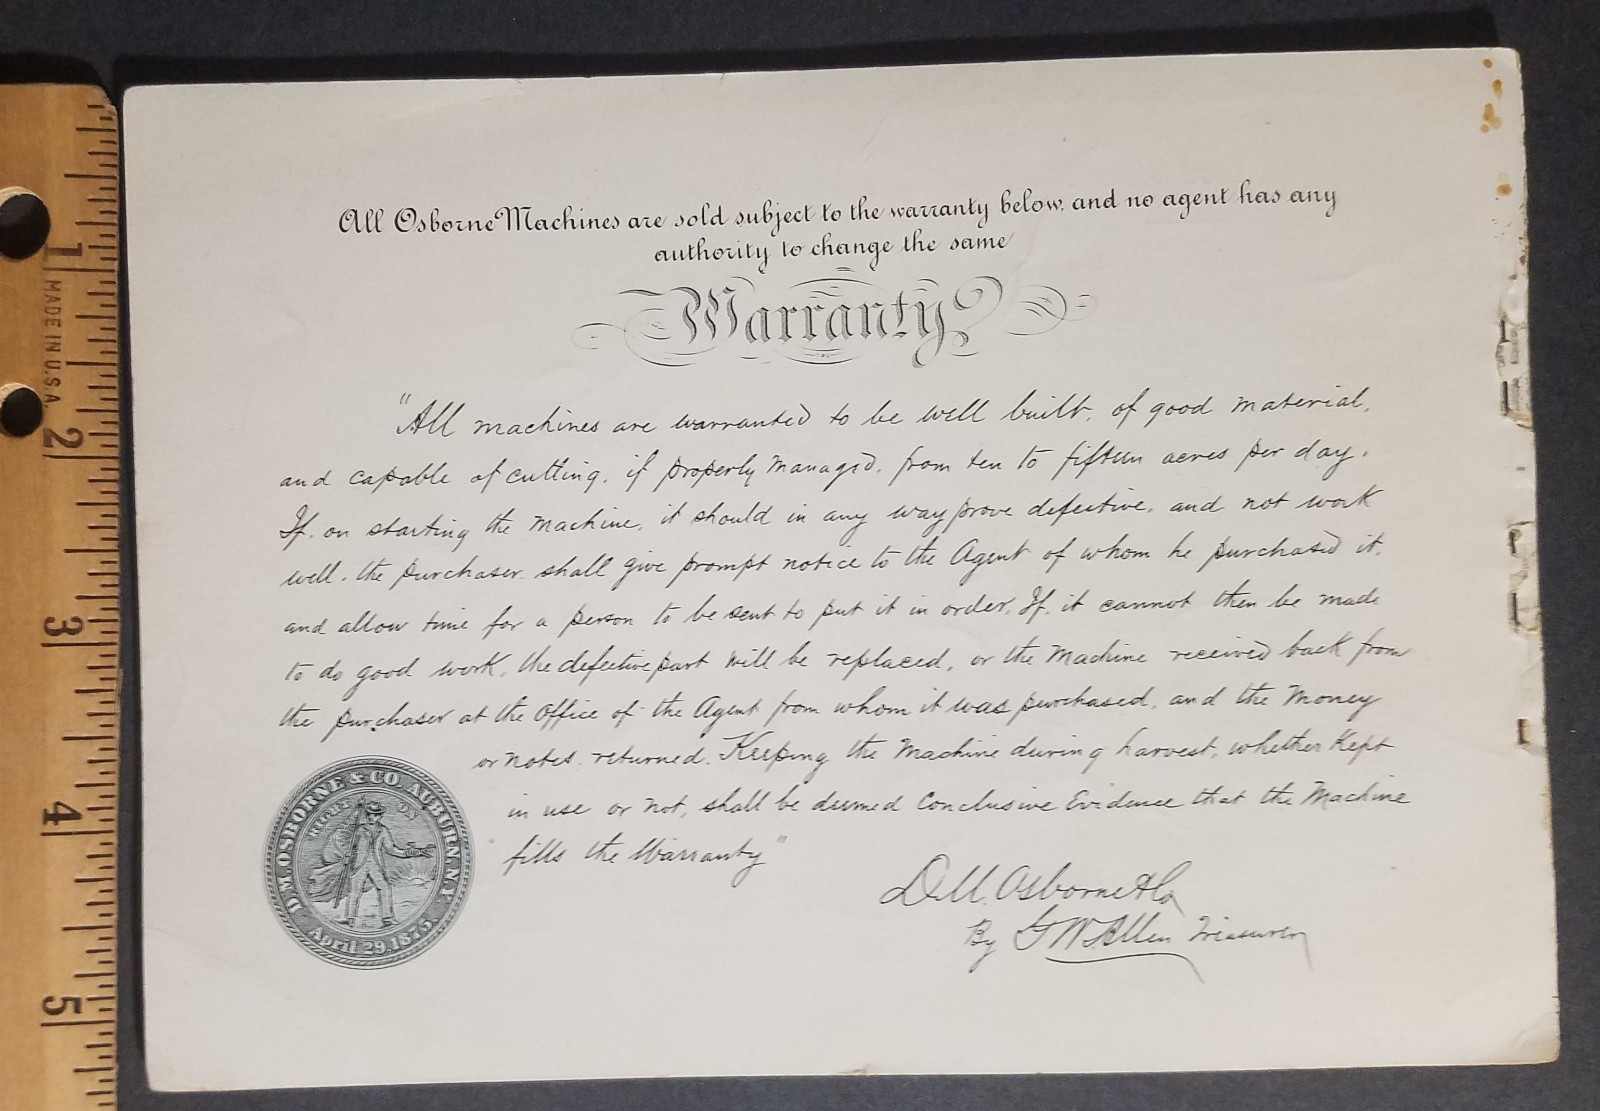 All Osborne Machines are sold subject to the warranty below, and no agent has any
authority to change the same
Warranty
"All machines are warranted to be well built, of good material,
and capable of cutting, if properly managed, from ten to fifteen acres per day.
If, on starting the Machine, it should in any way prove defective, and not work
well, the purchaser shall give prompt notice to the Agent of whom he purchased it,
and allow time for a person to be sent to put it in order. If it cannot then be made
to do good work, the defective part will be replaced, or the Machine received back from
the purchaser at the Office of the Agent from whom it was purchased, and the Money
or notes returned. Keeping the Machine during harvest, whether Kept
in use or not, shall be deemed Conclusive Evidence that the Machine
fills the Warranty"
D.M. Osborne & Co
By G W Allen Treasurer
D.M. OSBORNE & CO. AUBURN. N.Y.
April 29. 1875.
1
MADE IN U.S.A.
2
3
4
5